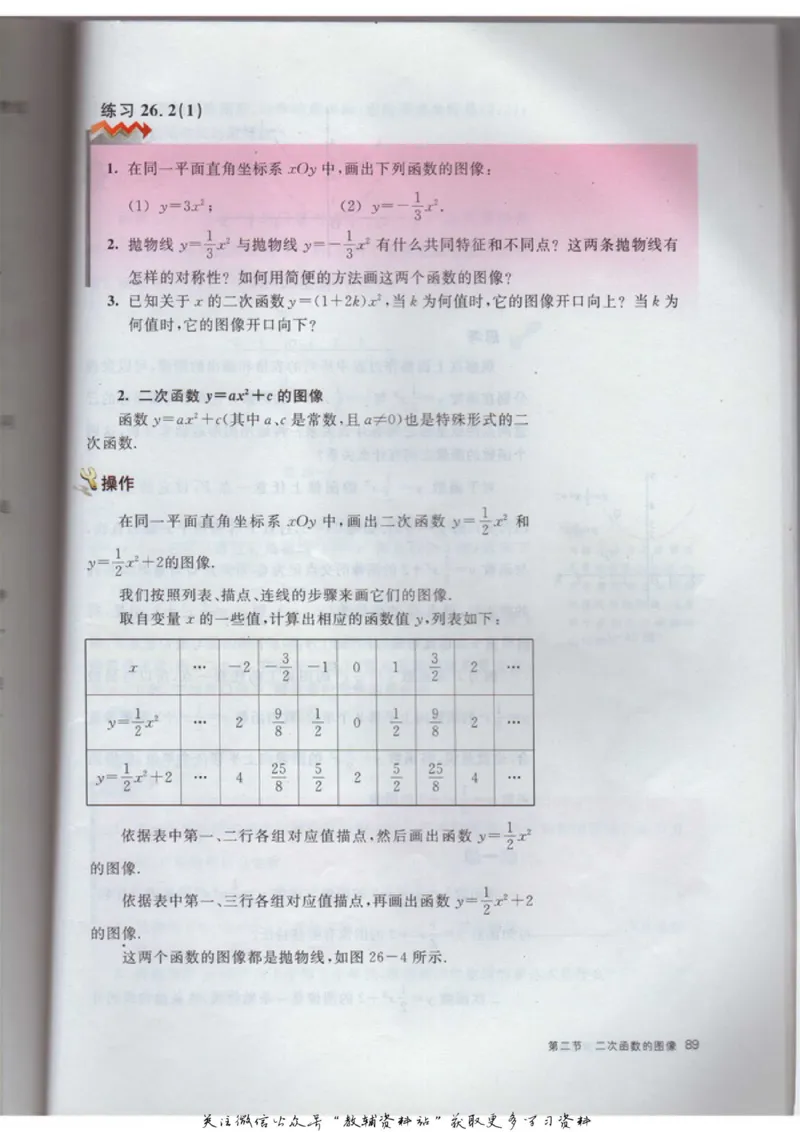 练习 26.2(1)
1. 在同一平面直角坐标系 xOy 中,画出下列函数的图像:
(1) y=3x²; (2) y=-1/3x².
2. 抛物线 y=1/3x² 与抛物线 y=-1/3x² 有什么共同特征和不同点? 这两条抛物线有
怎样的对称性? 如何用简便的方法画这两个函数的图像?
3. 已知关于 x 的二次函数 y=(1+2k)x²,当 k 为何值时,它的图像开口向上? 当 k 为
何值时,它的图像开口向下?
2. 二次函数 y=ax²+c 的图像
函数 y=ax²+c(其中 a、c 是常数,且 a≠0)也是特殊形式的二
次函数.
操作
在同一平面直角坐标系 xOy 中,画出二次函数 y=1/2x² 和
y=1/2x²+2的图像.
我们按照列表、描点、连线的步骤来画它们的图像.
取自变量 x 的一些值,计算出相应的函数值 y,列表如下:
x … -2 -3/2 -1 0 1 3/2 2 …
y=1/2x² … 2 9/8 1/2 0 1/2 9/8 2 …
y=1/2x²+2 … 4 25/8 5/2 2 5/2 25/8 4 …
依据表中第一、二行各组对应值描点,然后画出函数 y=1/2x²
的图像.
依据表中第一、三行各组对应值描点,再画出函数 y=1/2x²+2
的图像.
这两个函数的图像都是抛物线,如图 26-4 所示.
第二节 二次函数的图像 89
关注微信公众号"教辅资料站"获取更多学习资料